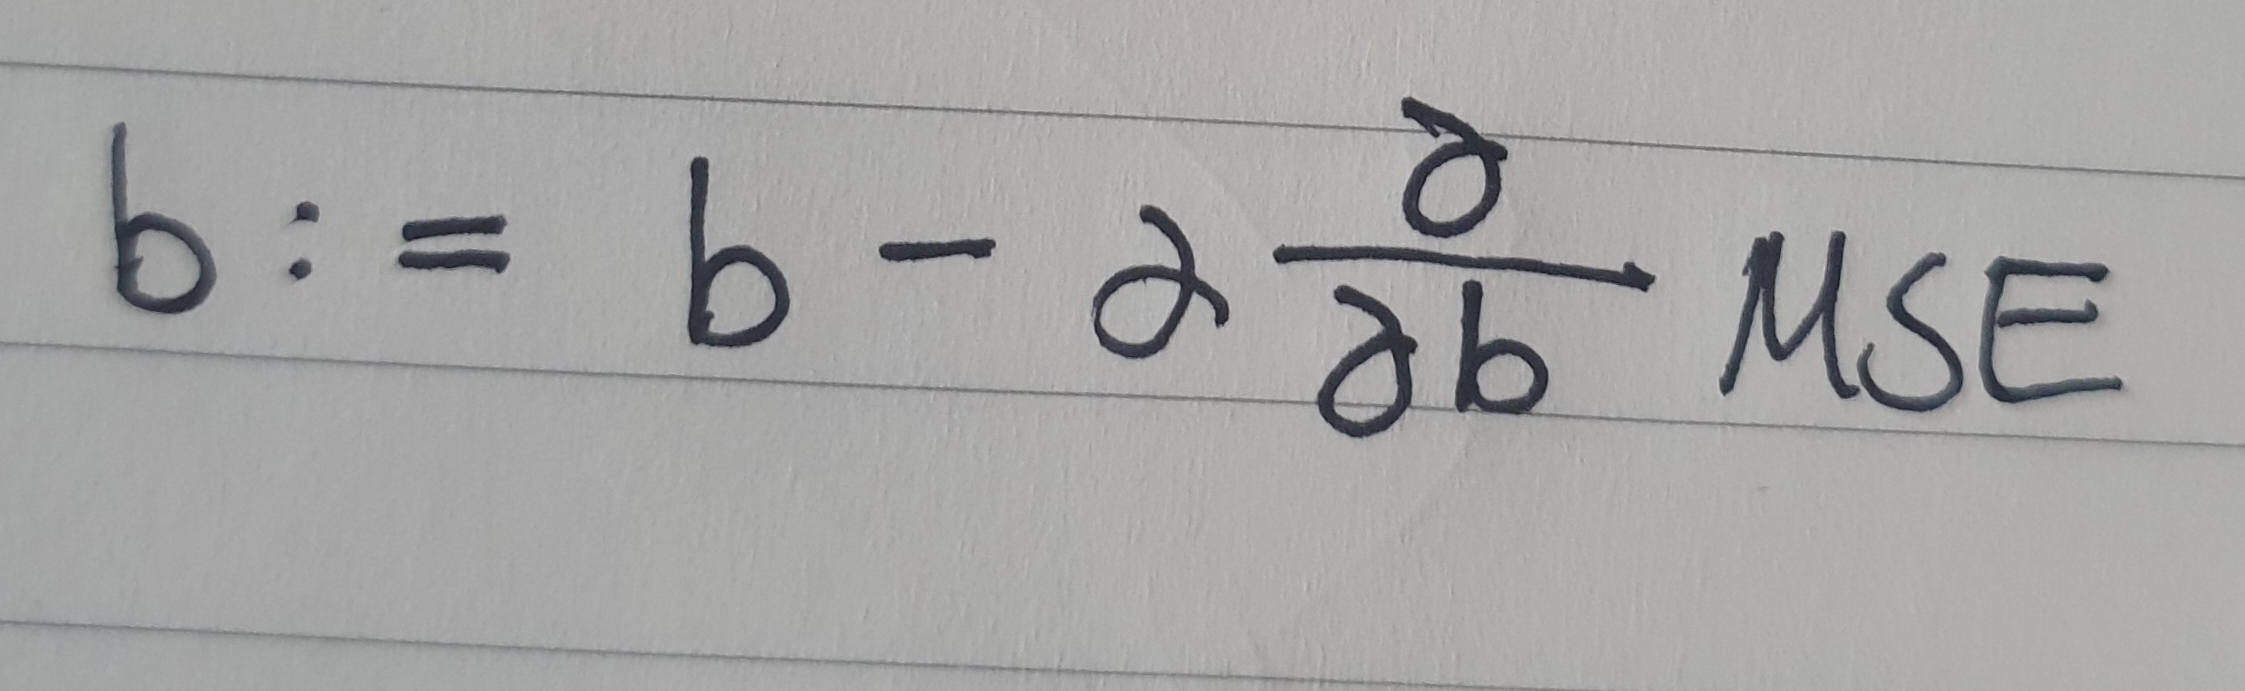 b := b - α ∂/∂b MSE